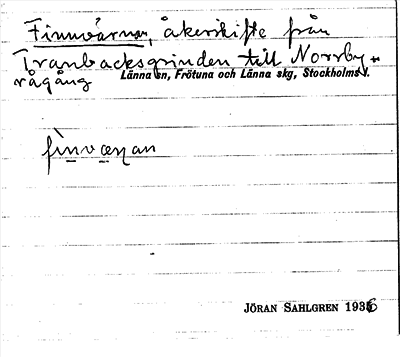 Finnvårnar, åkerskifte från
Tranbacksgrinden till Norrby
rågång
Länna sn, Frötuna och Länna skg, Stockholms l.
fìnvæṇan
JÖRAN SAHLGREN 1936